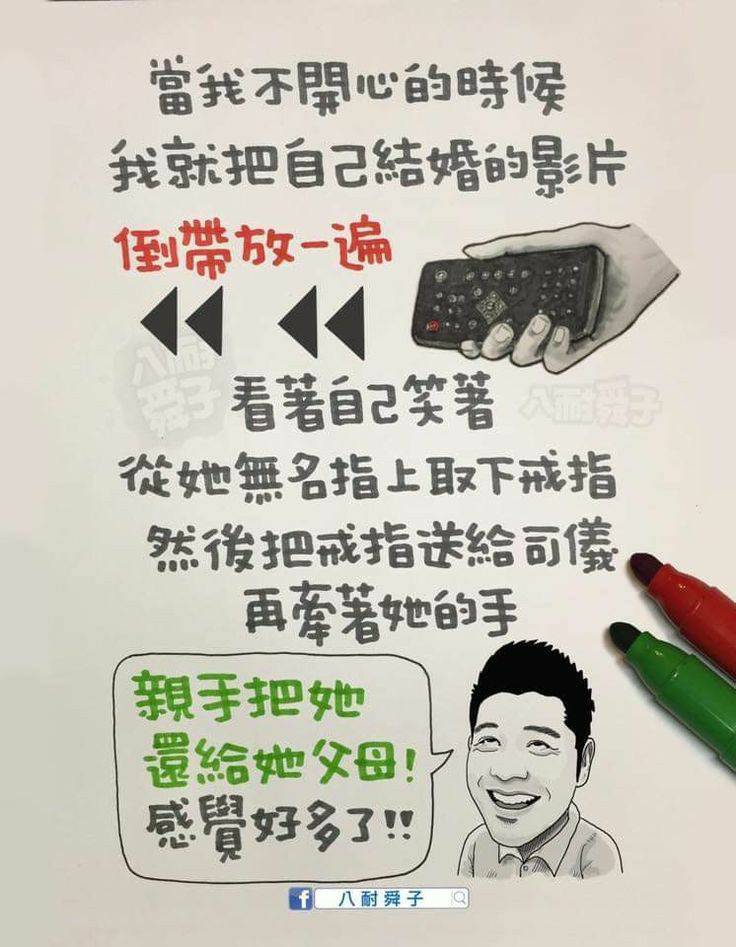 當我不開心的時候
我就把自己結婚的影片
倒帶放一遍
八耐
舜子
看著自己笑著
八耐舜子
從她無名指上取下戒指
然後把戒指送給司儀
再牽著她的手
親手把她
還給她父母!
感覺好多了!!
f 八耐舜子